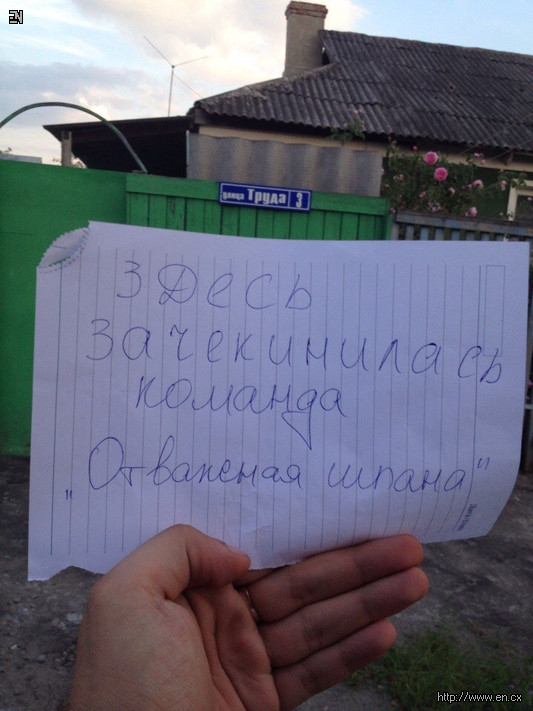 EN
улица Труда 3
Здесь
зачекинилась
команда
„Отважная шпана"
http://www.en.cx